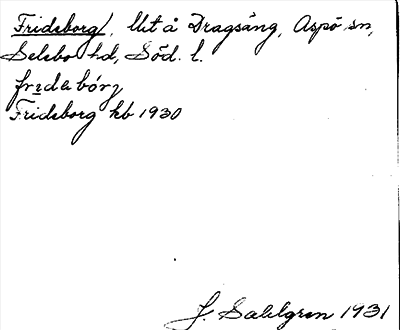 Fridsborg, lht å Dragsäng, Aspö sn,
Selebo hd, Söd. l.
Fridsborg hb 1930
J. Sahlgren 1931